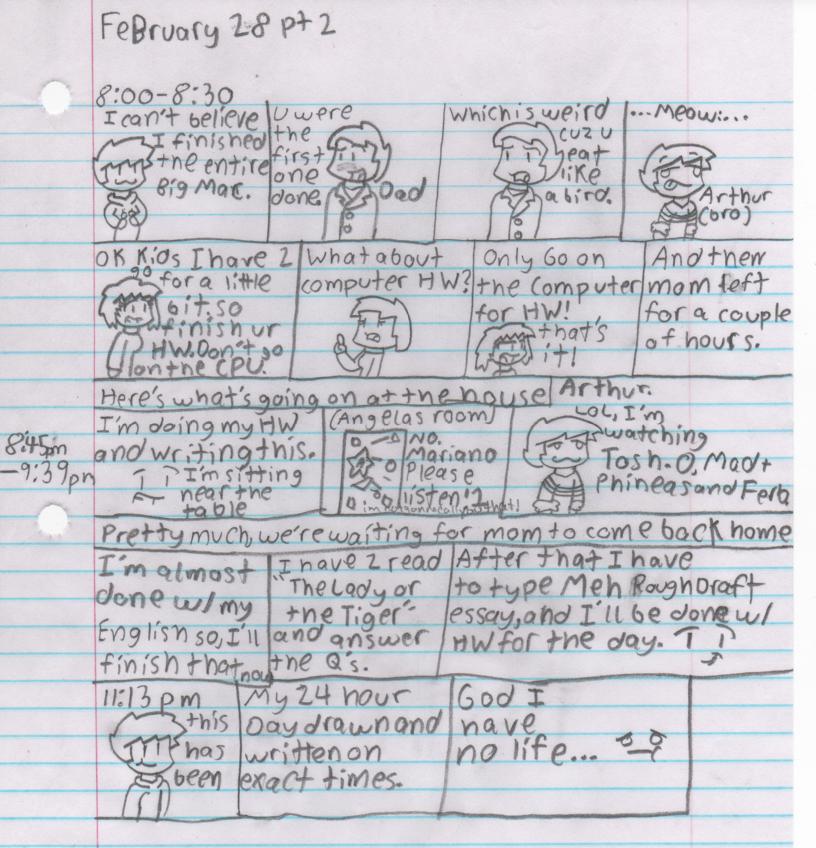 FeBruary 28 pt 2
8:00-8:30
I can't believe
I finished
the entire
Big Mac.
U were
the
first
one
done.
Dad
Which is weird
cuz u
eat
like
a bird.
...Meow:...
Arthur
(bro)
OK Kids I have 2
go
for a little
bit, so
finish ur
HW. Don't go
on the CPU.
What about
computer HW?
Only Go on
the Computer
for HW!
that's
it!
And then
mom left
for a couple
of hours.
Here's what's going on at the house
8:45pm
-9:39pm
I'm doing my HW
and writing this.
I'm sitting
near the
table
(Angelas room)
NO.
Mariano
Please
listen!
Arthur.
LOL, I'm
watching
Tosh.O, Mad +
Phineas and Ferb
Pretty much, we're waiting for mom to come back home
I'm almost
done w/ my
English so, I'll
finish that now
I have 2 read
"The Lady or
the Tiger"
and answer
the Q's.
After that I have
to type Meh RoughDraft
essay, and I'll be done w/
HW for the day.
11:13 pm
this
has
been
My 24 hour
Day drawn and
written on
exact times.
God I
have
no life...